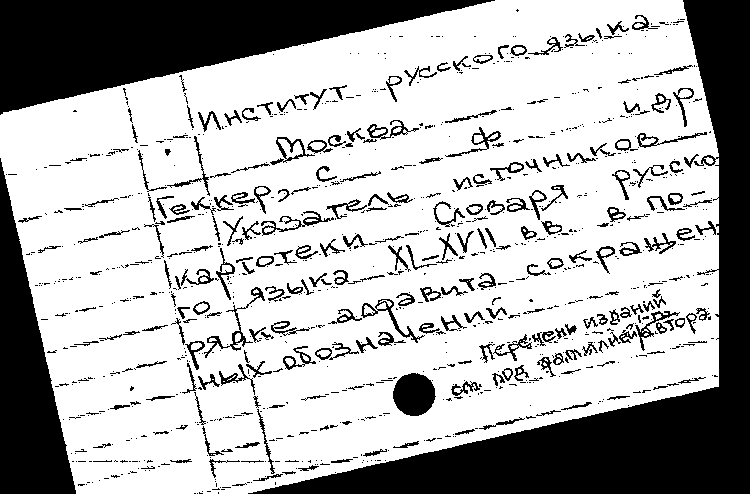 Институт русского языка.
Москва.
Геккер, С Ф и др
Указатель источников
картотеки Словаря русско
го языка XI–XVII вв. в по-
рядке алфавита сокращен
ных обозначений.
Перечень изданий
см под фамилией автора.